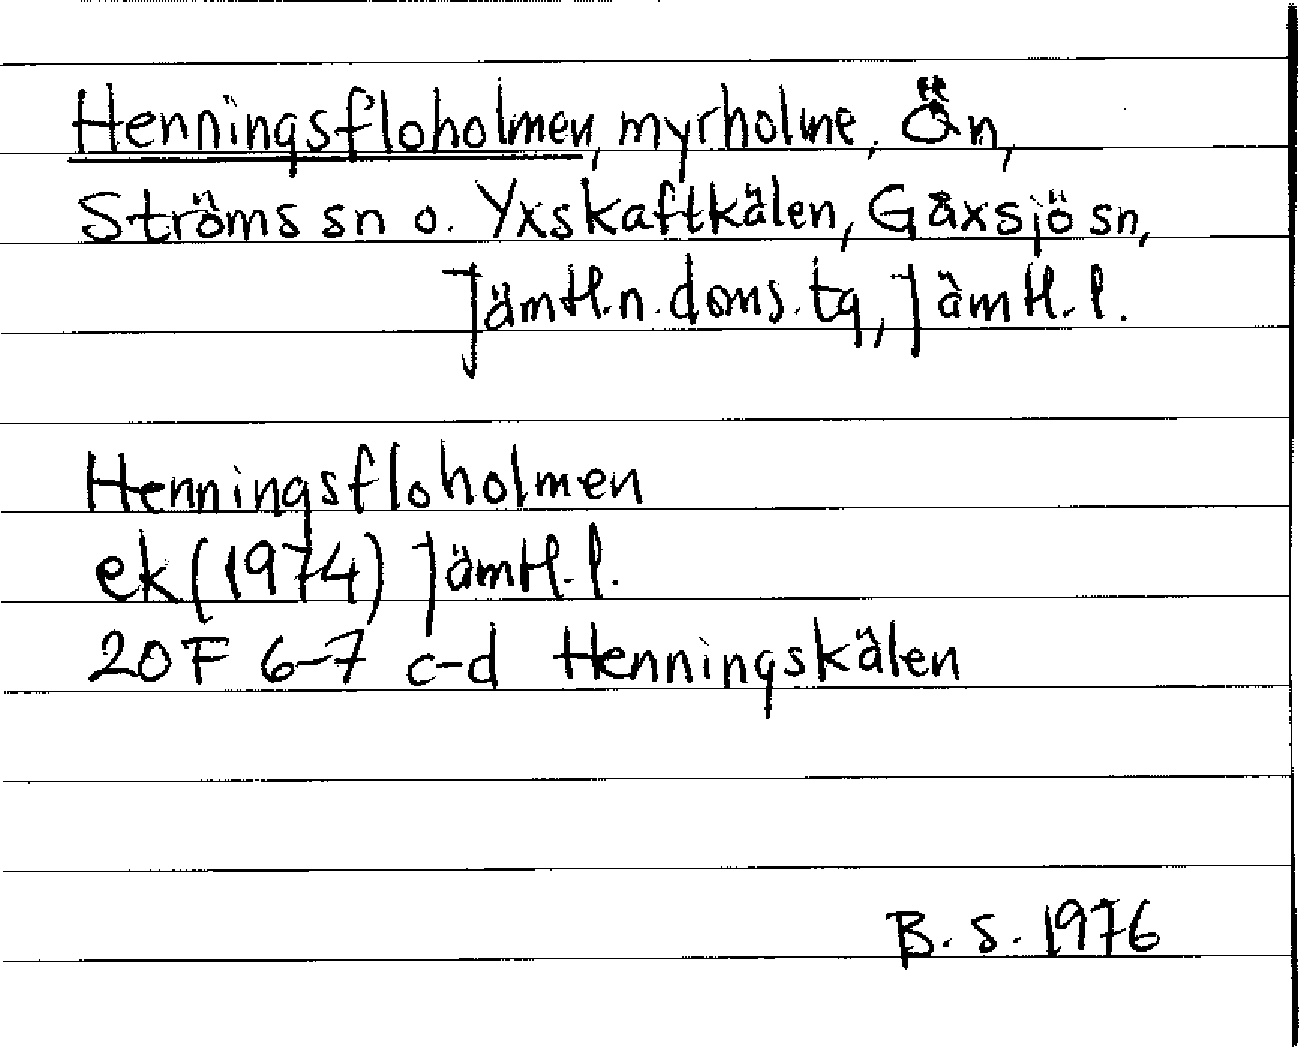 Henningsfloholmen, myrholme, Ön,
Ströms sn o. Yxskaftkälen, Gåxsjö sn,
Jämtl.n.doms.tg, Jämtl.l.
Henningsfloholmen
ek (1974) Jämtl.l.
20F 6-7 c-d Henningskälen
B.S. 1976